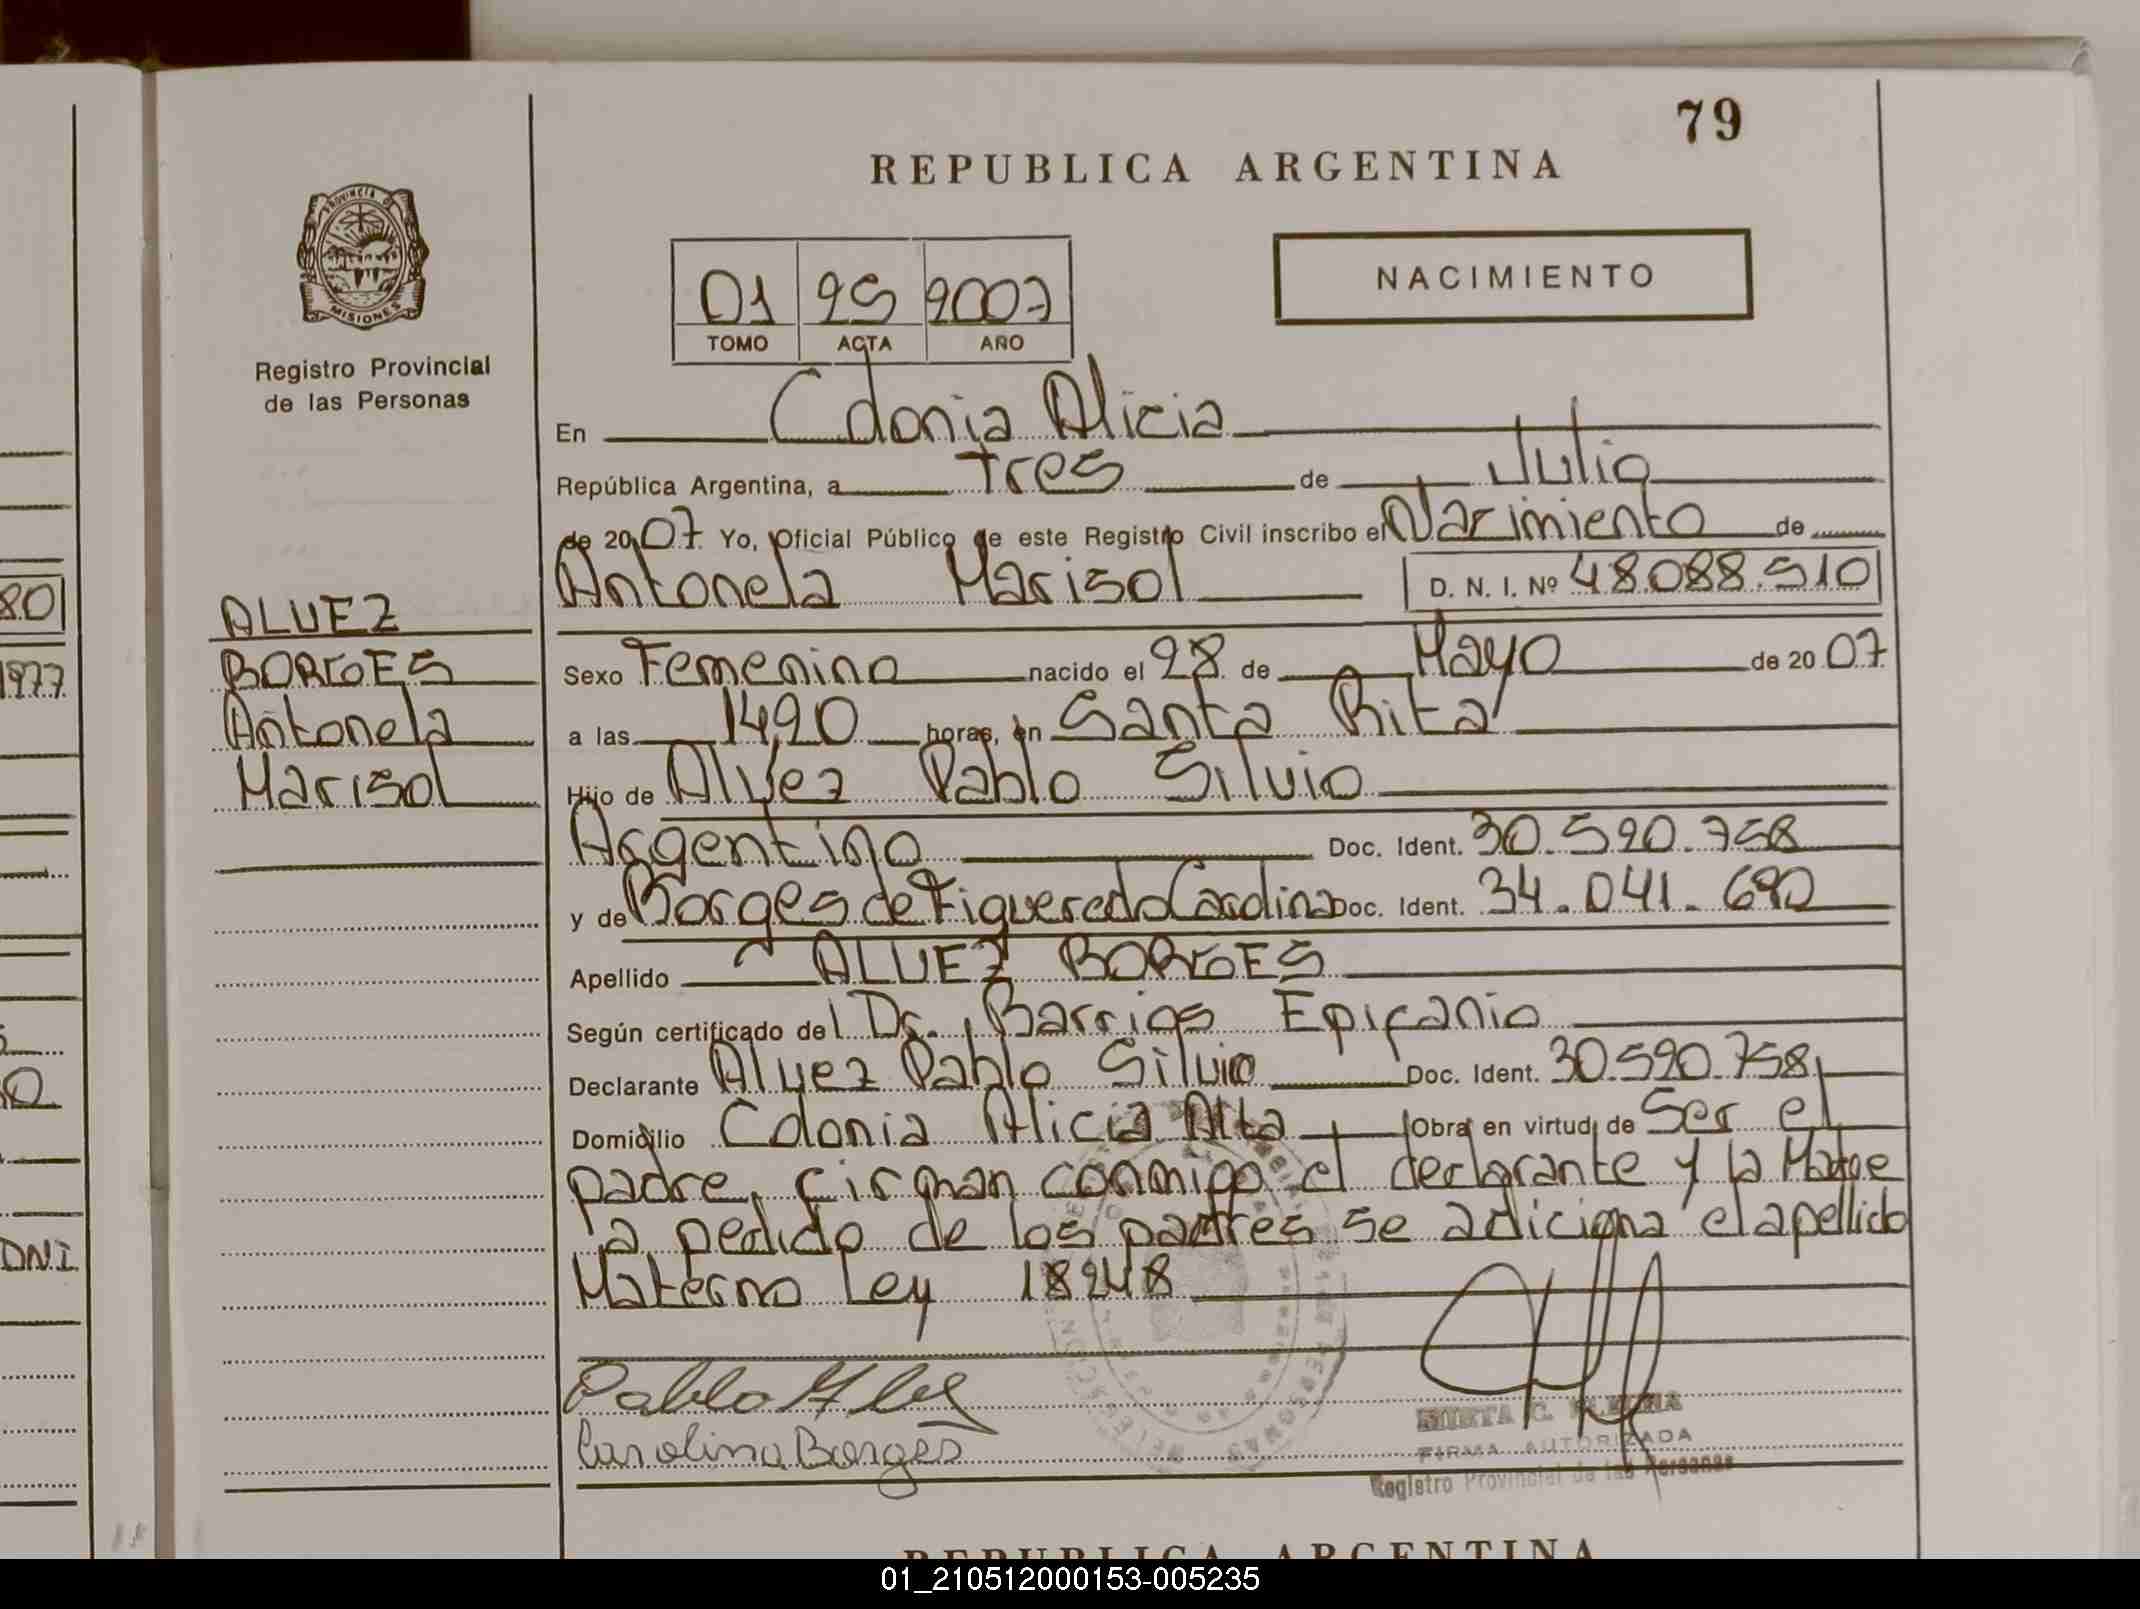 79
REPUBLICA ARGENTINA
PROVINCIA DE
MISIONES
Registro Provincial
de las Personas
01 25 2007
TOMO ACTA AÑO
NACIMIENTO
En Colonia Alicia
República Argentina, a tres de Julio
de 2007 Yo, Oficial Público de este Registro Civil inscribo el Nacimiento de
Antonela Marisol D. N. I. Nº 48088.510
ALVEZ
BORGES
Antonela
Marisol
Sexo Femenino nacido el 28 de Mayo de 2007
a las 14,20 horas, en Santa Rita
Hijo de Alvez Pablo Silvio
Argentino Doc. Ident. 30.520.758
y de Borges de Figueredo Carolina Doc. Ident. 34.041.680
Apellido ALVEZ BORGES
Según certificado del Dr. Barrios Epifanio
Declarante Alvez Pablo Silvio Doc. Ident. 30.520.758
Domicilio Colonia Alicia Alta Obra en virtud de Ser el
padre, firman conmigo el declarante y la Madre
a pedido de los padres se adiciona el apellido
Materno Ley 18248
Pablo
Carolina Borges
FIRMA AUTORIZADA
Registro Provincial de las Personas
REPUBLICA ARGENTINA
80
1977
DNI
01_210512000153-005235